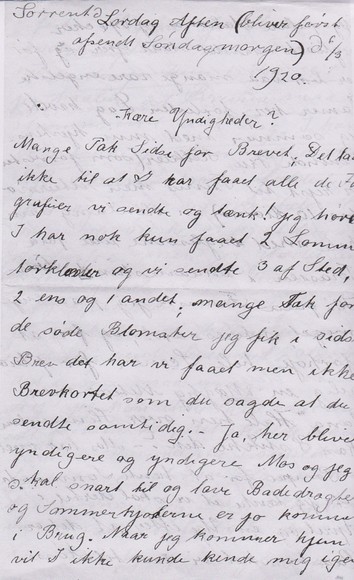 Sorrent d Lørdag Aften (bliver først
afsendt Søndagmorgen) 6/3
1920.
Kære Yndigheder?
Mange Tak Sidse for Brevet, Det kan
ikke til at I har faaet alle de F
grafier vi sendte og tænk! jeg hør
I har nok kun faaet 2 Lomme
tørklæder og vi sendte 3 af Sted,
2 ens og 1 andet; mange Tak for
de søde Blomster jeg fik i sids
Brev det har vi faaet men ikke
Brevkortet som du sagde at du
sendte samtidig. - Ja, her blive
yndigere og yndigere Mos og jeg
skal snart til og lave Badedragter
og Sommerkjolerne er jo komme
i Brug. Naar jeg kommer hjem
vil I ikke kunde kinde mig igen